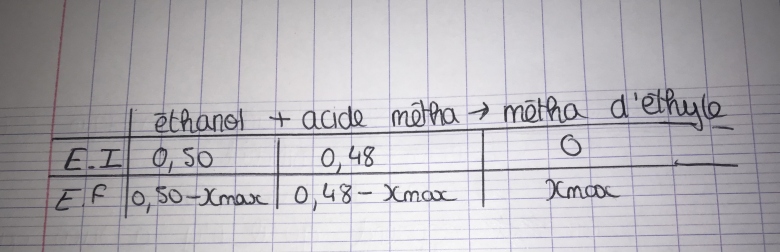 éthanol + acide métha → métha d'éthyle
E.I 0,50 0,48 0
EF 0,50-Xmax 0,48-Xmax Xmax